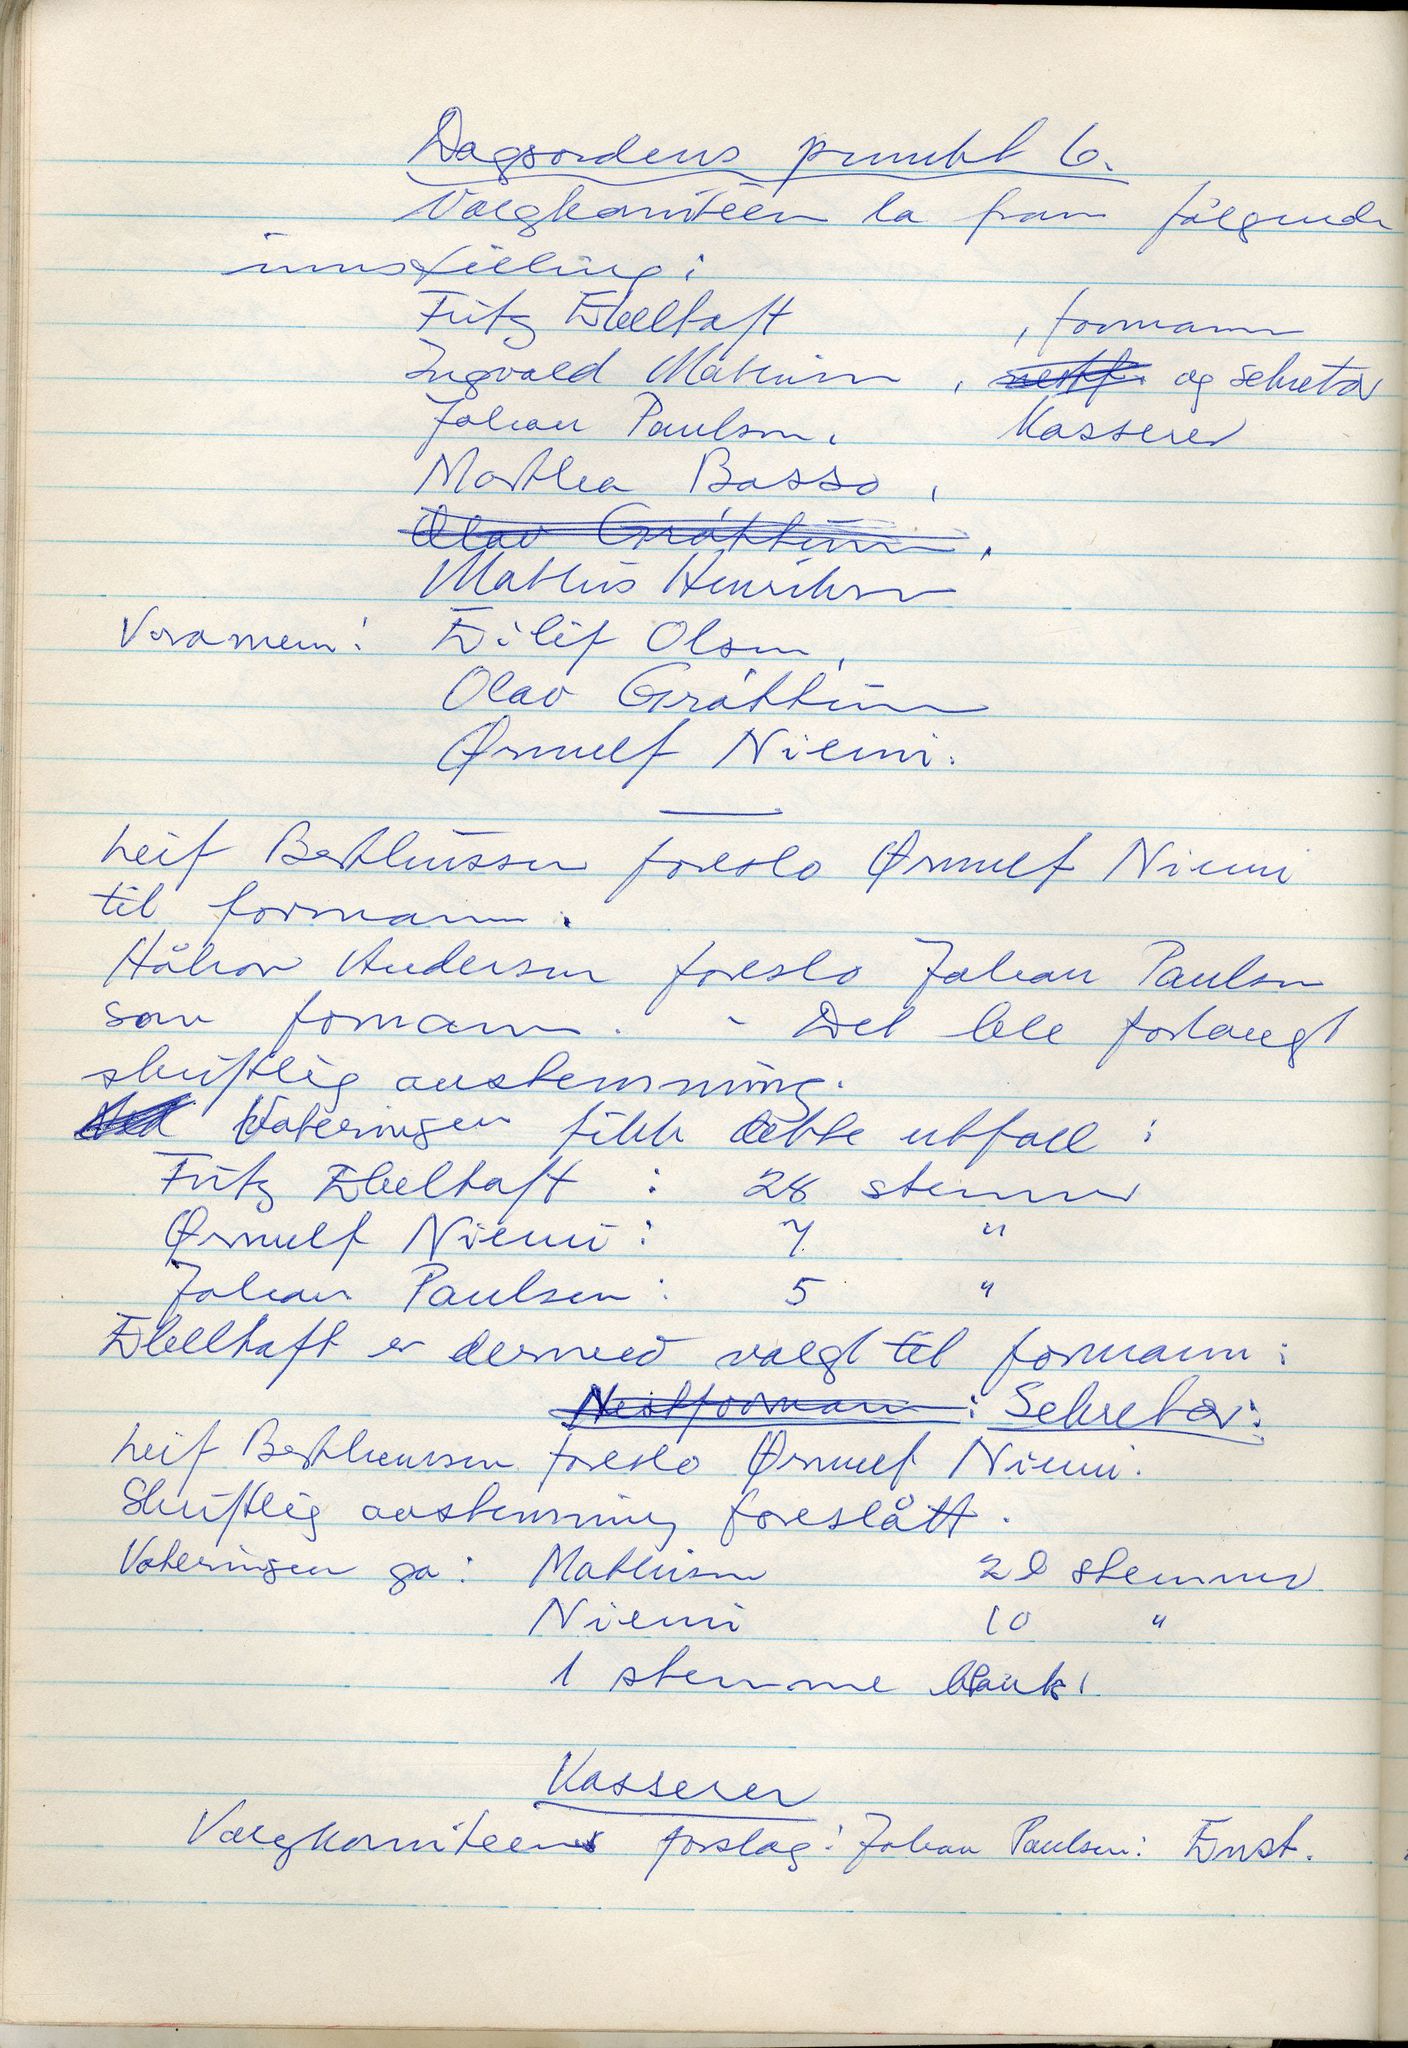 Dagsordens punkt 6.
Valgkomiteen la fram følgende
innstilling:
Fritz Ebeltoft , formann
Ingvald Mathisen , nestf. og sekretær
Johan Paulsen. Kasserer
Marthea Basso ,
Olav Gråttum ,
Mathis Henriksen
Varamenn: Eilif Olsen,
Olav Gråttum
Ørnulf Niemi.
Leif Berthinssen foreslo Ørnulf Niemi
til formann.
Håkon Andersen foreslo Johan Paulsen
som formann. - Det ble forlangt
skriftlig avstemming.
Ved Voteringen fikk dette utfall:
Fritz Ebeltoft : 28 stemmer
Ørnulf Niemi: 7 "
Johan Paulsen: 5 "
Ebeltoft er dermed valgt til formann:
Nestformann: Sekretær:
Leif Berthinssen foreslo Ørnulf Niemi.
Skriftlig avstemming foreslått.
Voteringen ga: Mathisen stemmer
Niemi 10 "
1 stemme blank
Kasserer
Valgkomiteens forslag: Johan Paulsen: Enst.